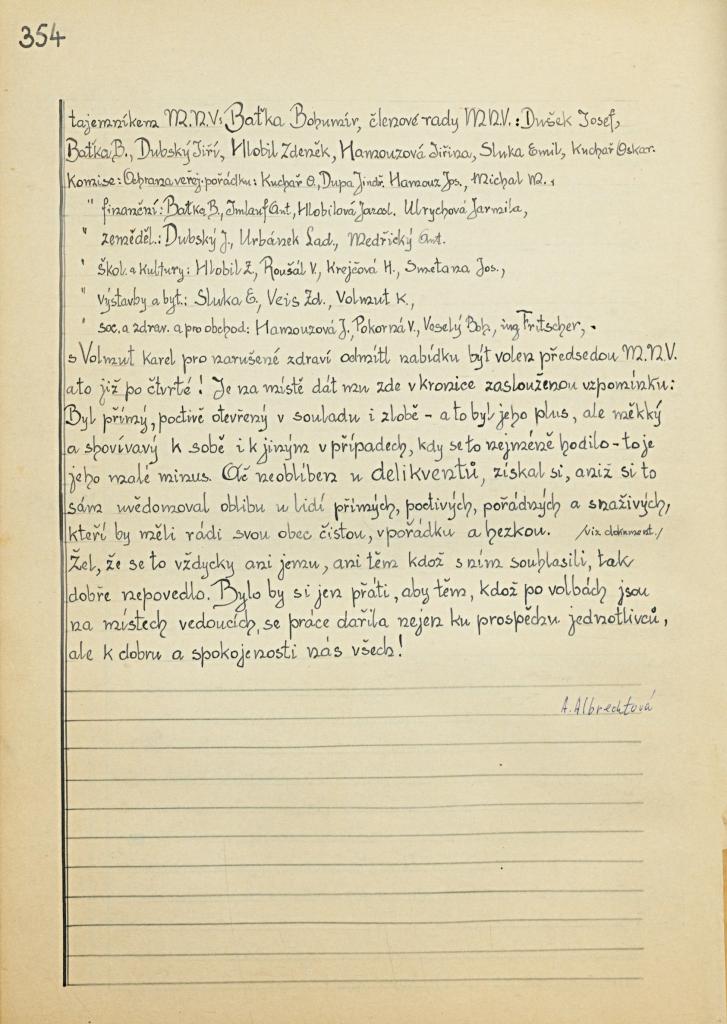 354
tajemníkem M.N.V: Baťka Bohumír, členové rady M.N.V.: Dušek Josef,
Baťka B., Dubský Jiří, Hlobil Zdeněk, Hamouzová Jiřina, Sluka Emil, Kuchař Oskar.
Komise: Ochrana veřej. pořádku: Kuchař O., Dupa Jindř. Hamouz Jos., Michal M.,
" finanční: Baťka B., Imlauf Ant., Hlobilová Jarosl. Ulrychová Jarmila,
" zeměděl.: Dubský J., Urbánek Lad., Medřický Ant.
" škol. a kultury: Hlobil Z., Roušál V., Krejčová H., Smetana Jos.,
" výstavby a byt.: Sluka E., Veis Zd., Volmut K.,
" soc. a zdrav. a pro obchod: Hamouzová J., Pokorná V., Veselý Boh., ing Fritscher, .
s Volmut Karel pro narušené zdraví odmítl nabídku být volen předsedou M.N.V.
a to již po čtvrté! Je na místě dát mu zde v kronice zaslouženou vzpomínku:
Byl přímý, poctivě otevřený v souladu i zlobě - a to byl jeho plus, ale měkký
a shovívavý k sobě i k jiným v případech, kdy se to nejméně hodilo - to je
jeho malé minus. Ač neoblíben u delikventů, získal si, aniž si to
sám uvědomoval oblibu u lidí přímých, poctivých, pořádných a snaživých,
kteří by měli rádi svou obec čistou, v pořádku a hezkou. /viz dokument./
Žel, že se to vždycky ani jemu, ani těm kdož s ním souhlasili, tak
dobře nepovedlo. Bylo by si jen přáti, aby těm, kdož po volbách jsou
na místech vedoucích, se práce dařila nejen ku prospěchu jednotlivců,
ale k dobru a spokojenosti nás všech!
A. Albrechtová